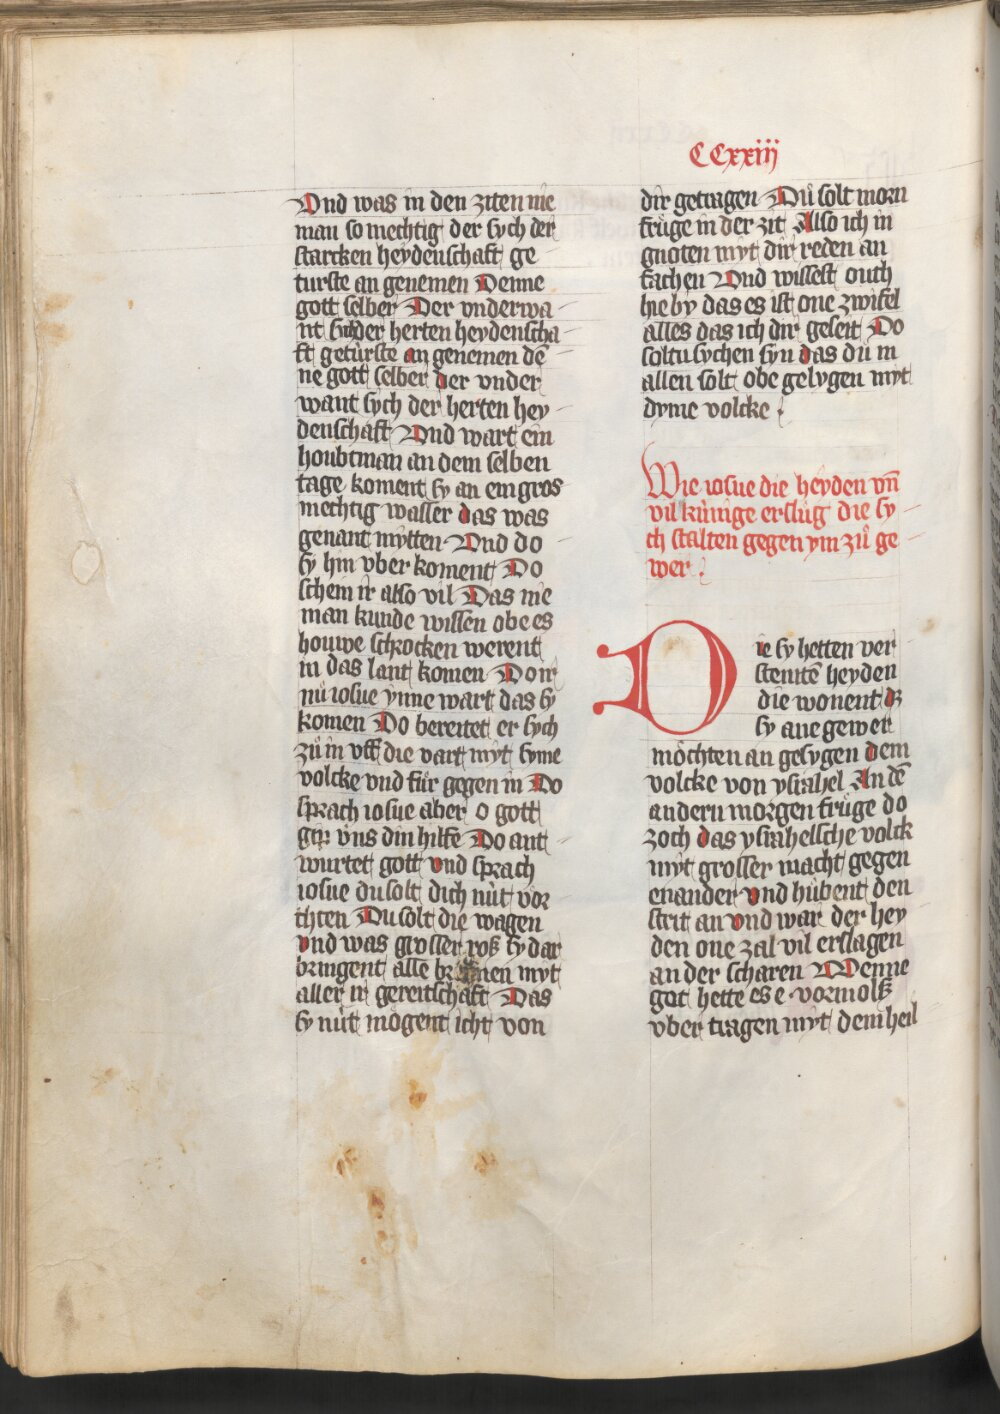 CCxxiij
Vnd was in den ziten nie
man so mechtig der sych der
starcken heydenschaft ge
turste an genemen Denne
gott selber Der vnderwa
nt sych der herten heydenscha
ft getürste an genemen de̅
ne gott selber der vnder
want sych der herten hey
denschaft Vnd wart ein
houbtman an dem selben
tage koment sy an ein gros
mechtig wasser das was
genant mytten Vnd do
sy hin vber koment Do
schein ir also vil Das nie
man kunde wissen obe es
houwe schrocken werent
in das lant komen Do ir
nü iosue ynne wart das sy
komen Do bereitet er sych
zů in vff die vart myt syme
volcke vnd fůr gegen in Do
sprach iosue aber o gott
gip vns din hilfe Do ant
wurtet gott vnd sprach
iosue du solt dich nüt vör
chten Du solt die wagen
vnd was grosser roß sy dar
bringent alle br nen myt
aller ir gereitschaft Das
sy nüt mögent icht von
dir getragen Du solt morn
früge in der zit Also ich in
gnoten myt dir reden an
fachen Vnd wissest ouch
hie by das es ist one zwifel
alles das ich dir geseit Do
soltu sychen syn das du in
allen solt obe gelygen myt
dyme volcke
Wie iosue die heyden vn̅
vil künige erslůg die sy
ch stalten gegen ym zů ge
wer
Die sy hetten ver
steinte̅ heyden
die wonent dz
sy ane gewer
möchten an gesygen dem
volcke von ysrahel An de̅
andern morgen früge do
zoch das ysrahelsche volck
myt grosser macht gegen
enander vnd hůbent den
strit an vnd war der hey
den one zal vil erslagen
an der scharen Wenne
got hette es e vormolß
vber tragen myt dem heil